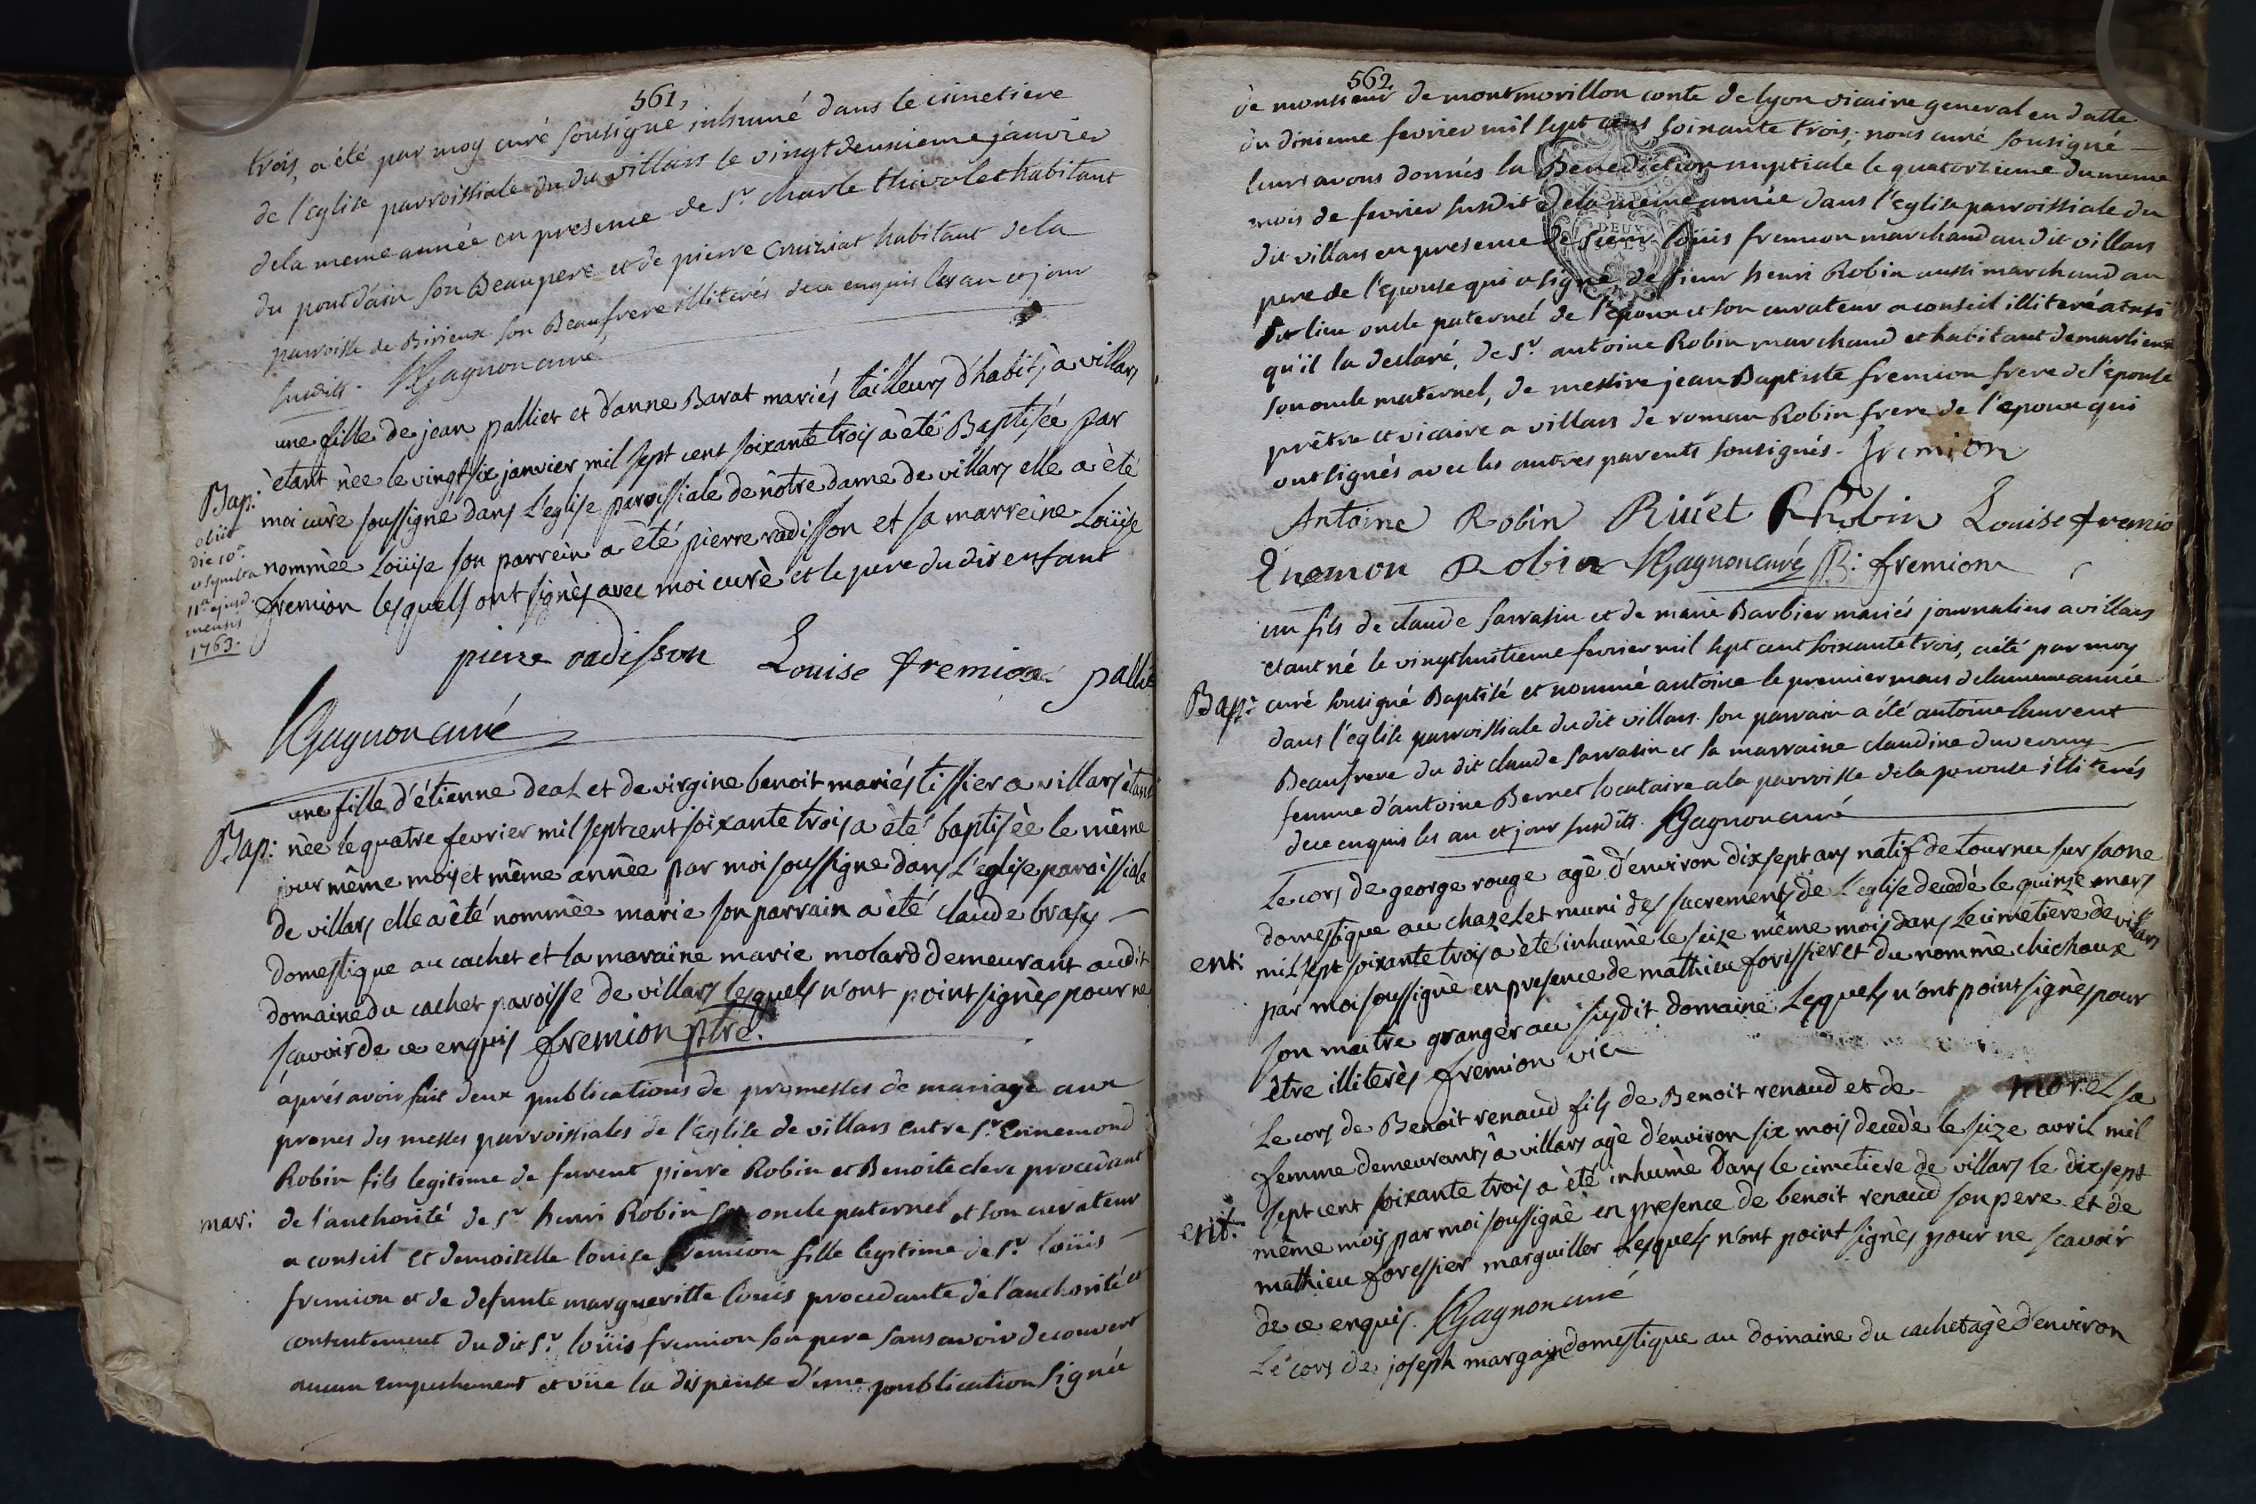 561,
trois, a été par moy curé sousigné inhumé dans le cimetiere
de l'eglise parroissiale du du villars le vingt deuxieme janvier
dela meme année en presence de Sr. charle thivolet habitant
du pont d'ain son Beaupere et de pierre Cruiziat habitant dela
parroisse de Birieux son Beaufrere illiterés de ce enquis les an et jour
susdits. Gagnon curé
une fille de jean palliet et d'anne Barat mariés tailleurs d'habits à villars
Bap: étant nèe le vingt six janvier mil sept cent soixante trois a èté Baptisée par
moi curè soussignè dans L'eglise paroissiale de nôtre dame de villars elle a èté
nommèe Loüise son parrein a été pierre radisson et sa marreine Loüise
fremion lesquels ont signès avec moi curè et le pere du dit enfant
obiit
die 10a.
11a ejusd.
mensis
1763.
pierre radisson Louise fremion pallie
Gagnon curé
une fille d'étienne deal et de virgine benoit mariés tissier a villars étant
Bap: nèe le quatre fevrier mil sept cent soixante trois a èté baptisèe le même
jour même mois et même annèe par moi soussignè dans L'eglise paroissiale
de villars elle a èté nommèe marie son parrain a èté claude brasy
domestique au cachet et la maraine marie molard demeurant audit
domaine du cachet paroisse de villars lesquels n'ont point signès pour ne
scavoir de ce enquis fremion ptre.
aprés avoir fait deux publications de promesses de mariage aux
prones des messes parroissiales de l'Eglise de villars entre Sr. Ennemond
Robin fils legitime de furent pierre Robin et Benoite clerc procedant
mari: de l'authorité de Sr henri Robin son oncle paternel et son curateur
a conseil et demoiselle louise fremion fille legitime de Sr. loüis
fremion et de defunte margueritte louis procedante de l'authorité et
consentement du dit Sr. loüis fremion son pere sans avoir decouvert
aucun empechement et vüe la dispense d'une publication signée
562,
de monsieur de montmorillon conte de lyon vicaire general en datte
du dixieme fevrier mil sept cens soixante trois; nous curé sousigné
leurs avons donnés la Benediction nuptiale le quatorzieme du meme
mois de fevrier susdit dela meme année dans l'eglise parroissiale du
dit villars en presence de sieur loüis fremion marchand au dit villars
pere de l'epouse qui a signé, de sieur henri Robin aussi marchand au
dit lieu oncle paternel de l'epoux et son curateur a conseil illiteré ainsi
qu'il la declaré, de Sr. antoine Robin marchand et habitant de marlieux
son oncle maternel, de messire jean Baptiste fremion frere de l'epouse
prêtre et vicaire a villars de roman Robin frere de l'epoux qui
ont signés avec les autres parents sousignés. fremion
Antoine Robin Riuét Robin Louise fremio
Enemon Robin Gagnon curé fremion
un fils de claude sarrasin et de marie Barbier mariés journaliers a villars
etant né le vingthuitieme fevrier mil sept cent soixante trois, a été par moy
Bap: curé sousigné Baptisé et nommé antoine le premier mars dela meme année
dans l'église parroissiale du dit villars. son parrain a été antoine laurent
Beaufrere du dit claude sarrasin et sa marraine claudine
femme d'antoine Bernet locataire a la parroisse dela peyrouse illiterés
dece enquis les an et jour susdits. Gagnon curé
Le cors de george rouge agè d'environ dix sept ans natif de tournu sur saone
domestique au chazelet muni des sacrements de L'eglise decedè le quinze mars
ent: mil sept soixante trois a èté inhumè le seize même mois dans le cimetiere de villars
par moi soussignè en presence de mathieu foressier et du nommè chichoux
son maitre granger au susdit domaine lesquels n'ont point signès pour
être illiterès fremion vic
Le cors de Benoit renaud fils de Benoit renaud et de morel sa
femme demeurants à villars agè d'environ six mois decedè le seize avril mil
ent: sept cent soixante trois a èté inhumè dans le cimetiere de villars le dix sept
même mois par moi soussignè en presence de benoit renaud son pere et de
mathieu foressier marguiller lesquels n'ont point signès pour ne scavoir
de ce enquis. Gagnon curé
Le cors de joseph domestique au domaine du cachet agè d'environ